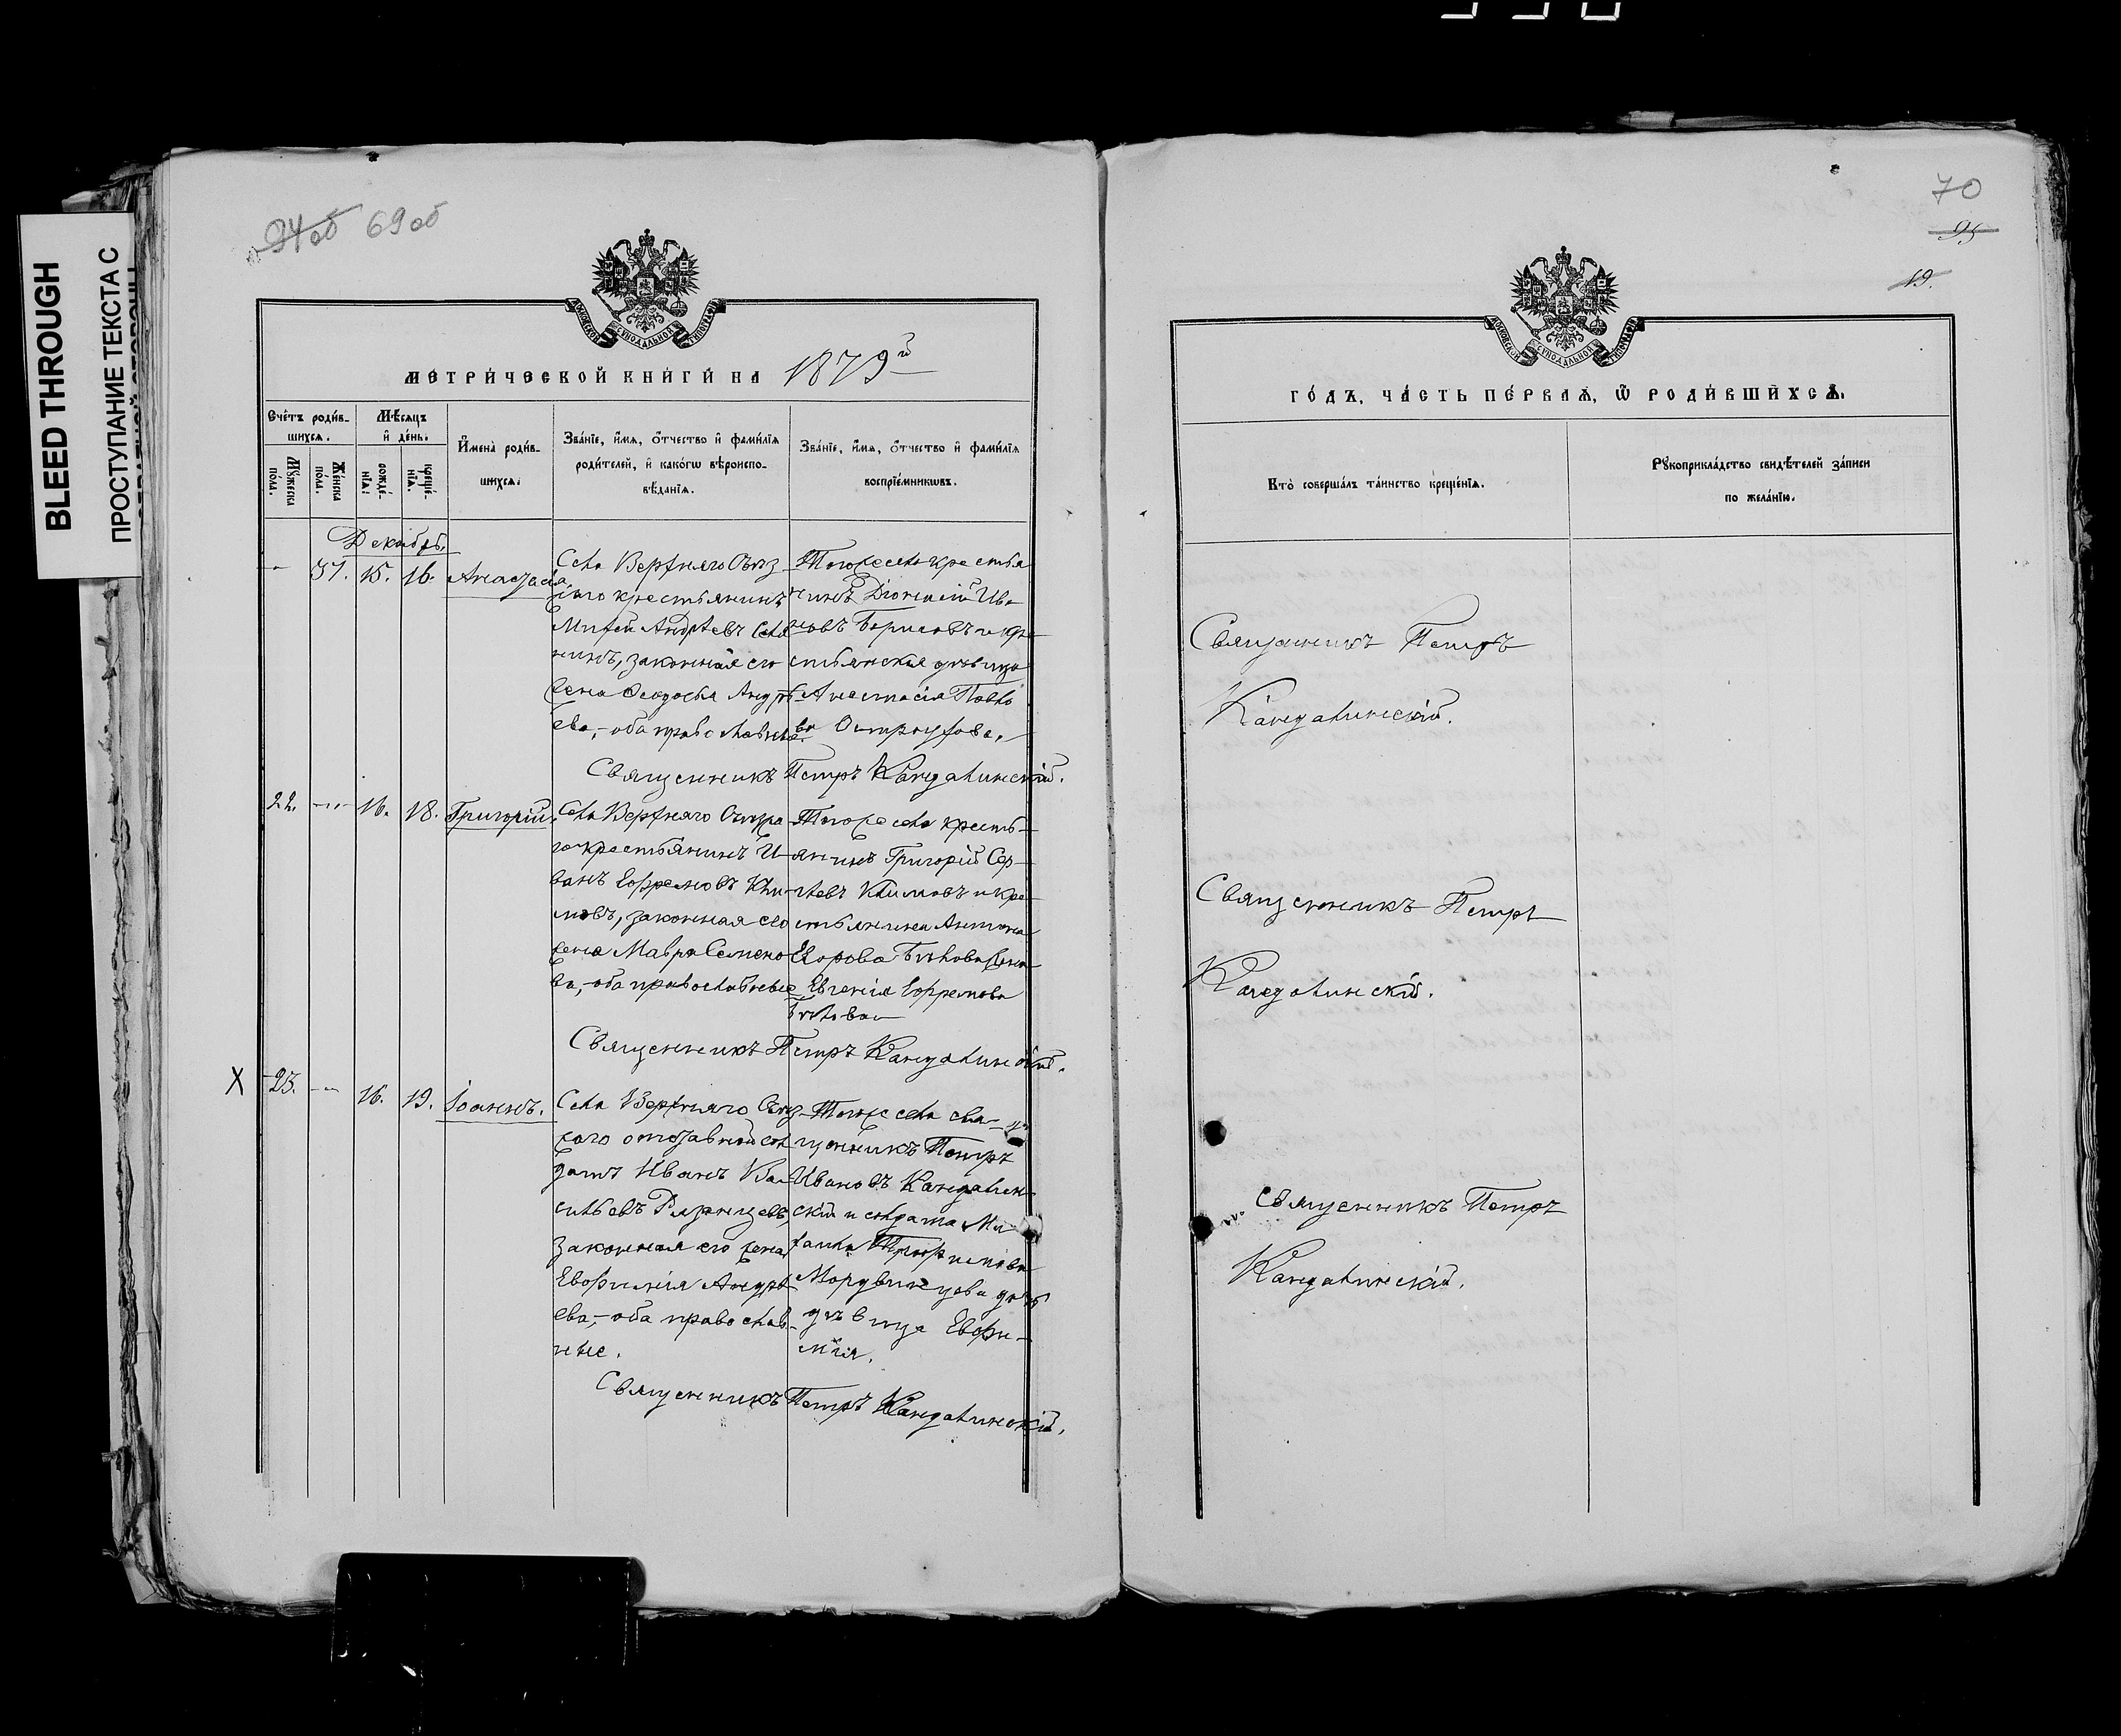 BLEED THROUGH
ПРОСТУПАНИЕ ТЕКСТА С
94об 69об
МОСКОВСКОЙ СѴНОДАЛЬНОЙ ТИПОГРАФІИ
МЕТРИ́ЧЕСКОЙ КНИ́ГИ НА 1879й
Сче́тъ роди́в-
шихсѧ.
Мѣ́сѧцъ
и҆ де́нь.
Мꙋ́жеска по́ла.
Же́нска по́ла.
рожде́-
нїѧ:
креще́-
нїѧ.
И҆мена̀ роди́в-
шихсѧ:
Зва́нїе, и҆́мѧ, ѻ҆́тчество и҆ фами́лїѧ
роди́телей, и҆ како́гѡ вѣроиспо-
вѣ́данїѧ.
Зва́нїе, и҆́мѧ, ѻ҆́тчество и҆ фами́лїѧ
воспрїе́мникѡвъ.
Декабрь.
31. 15. 16. Анастасія
Села Верхняго Съѣз
жаго крестьянинъ
Андреевъ
нинъ, законная его
жена Ѳеодосья Андрѣ
ева,- оба православные
Тогоже села крестья
нинъ Діонисій Ива
новъ Борисовъ и кре
стьянская дѣвица
Анастасія Павло
ва
Священникъ Петръ Кандалинскій.
22. -"- 16. 18. Григорій.
Села Верхняго Съѣзжа
го крестьянинъ И
ванъ Ефремовъ Кли
мовъ, законная его
жена Мавра Семено
ва,- оба православные
Тогоже села кресть-
янинъ Григорій Сер-
гѣевъ Климовъ и кре
стьянина Антона
Егорова Бѣлова жена
Евгенія Ефремова
Бѣлова
Священникъ Петръ Кандалинскій.
X 23. -"- 16. 19. Іоаннъ.
Села Верхняго Съѣз
жаго отставной сол
датъ Иванъ Ва
сильевъ Рязанцевъ,
законная его жена
Евфимія Андрѣ
ева,- оба православ-
ные.
Тогоже села свя-
щенникъ Петръ
Ивановъ Кандалин-
скій и солдата Ми
хаила Трофимова
дочь
дѣвица Евфи-
мія.
Священникъ Петръ Кандалинскій.
70
95
19.
МОСКОВСКОЙ СѴНОДАЛЬНОЙ ТИПОГРАФІИ
ГО́ДЪ, ЧА́СТЬ ПЕ́РВАѦ, Ѿ РОДИ́ВШИХСѦ.
Кто̀ соверша́лъ та́инство креще́нїѧ.
Рꙋкоприкла́дство свидѣ́телей за́писи
по жела́нїю.
Священникъ Петръ
Кандалинскій.
Священникъ Петръ
Кандалинскій.
Священникъ Петръ
Кандалинскій.